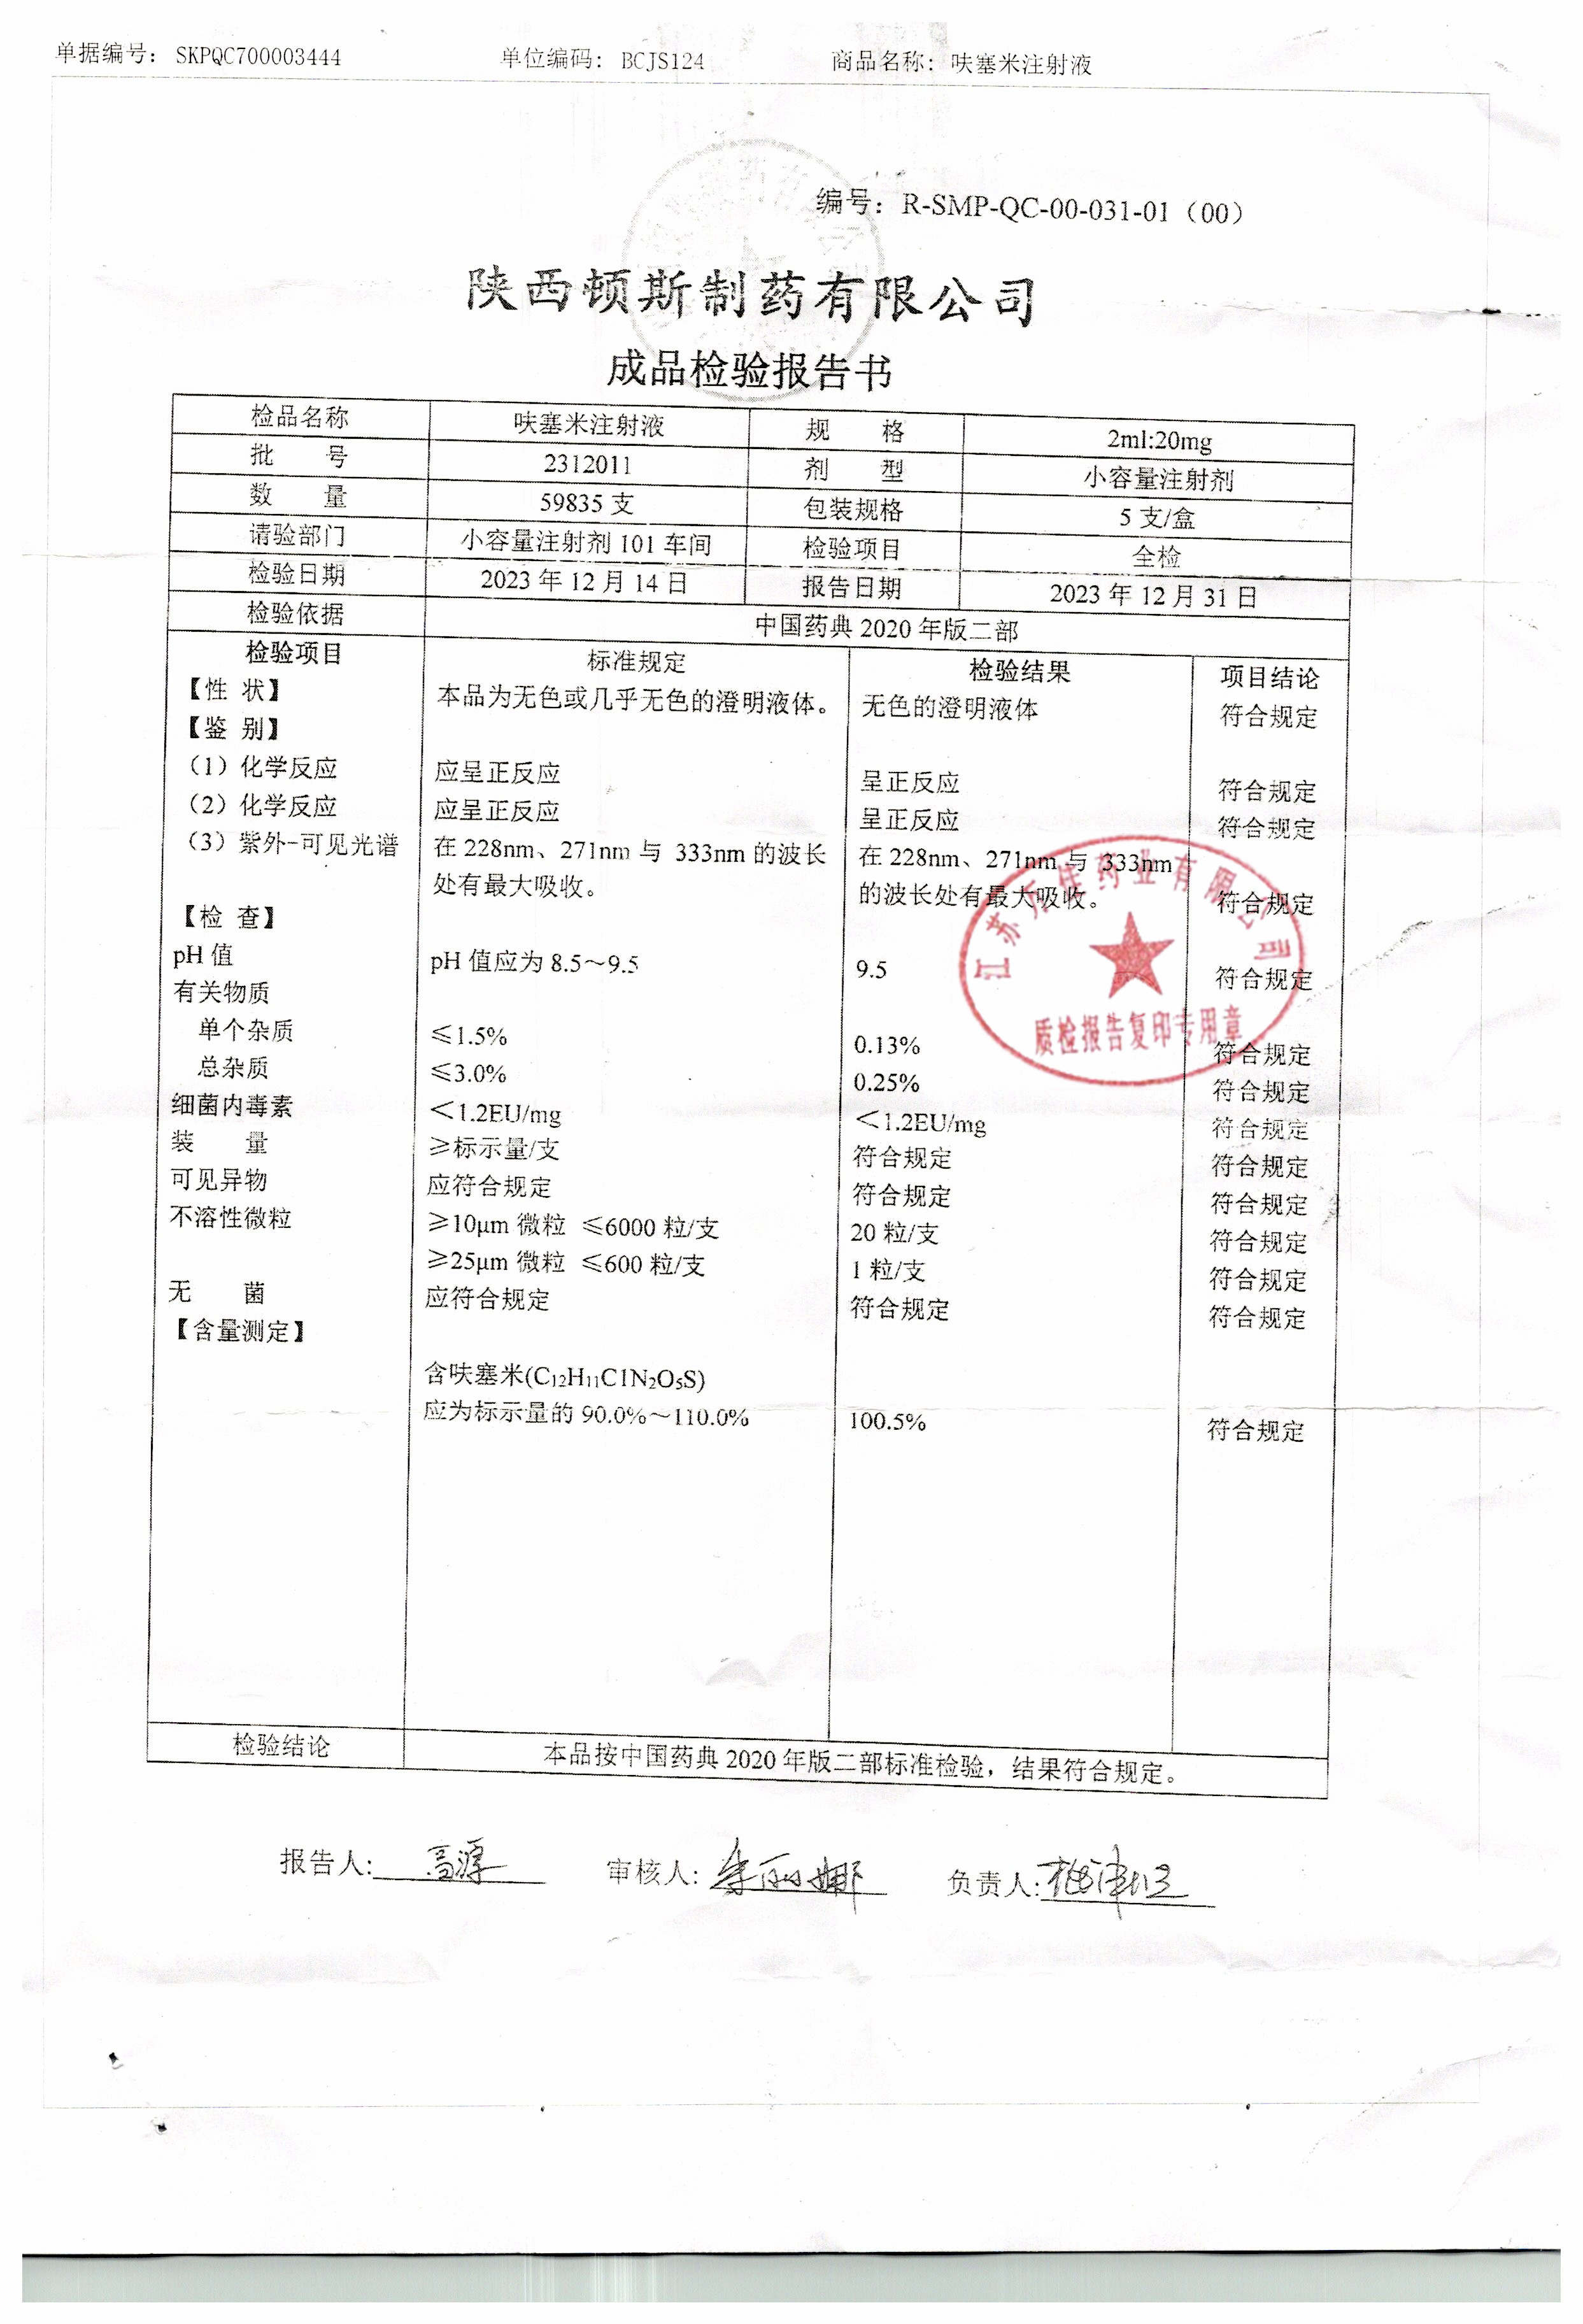 单据编号： SKPQC700003444 单位编码： BCJS124 商品名称： 呋塞米注射液
编号：R-SMP-QC-00-031-01（00）
陕西顿斯制药有限公司
成品检验报告书
检品名称 呋塞米注射液 规 格 2ml:20mg
批 号 2312011 剂 型 小容量注射剂
数 量 59835 支 包装规格 5 支/盒
请验部门 小容量注射剂 101 车间 检验项目 全检
检验日期 2023 年 12 月 14 日 报告日期 2023 年 12 月 31 日
检验依据 中国药典 2020 年版二部
检验项目 标准规定 检验结果 项目结论
【性 状】 本品为无色或几乎无色的澄明液体。 无色的澄明液体 符合规定
【鉴 别】
（1）化学反应 应呈正反应 呈正反应 符合规定
（2）化学反应 应呈正反应 呈正反应 符合规定
（3）紫外-可见光谱 在 228nm、271nm 与 333nm 的波长 在 228nm、271nm 与 333nm
处有最大吸收。 的波长处有最大吸收。 符合规定
【检 查】
pH 值 pH 值应为 8.5～9.5 9.5 符合规定
有关物质
单个杂质 ≤1.5% 0.13% 符合规定
总杂质 ≤3.0% 0.25% 符合规定
细菌内毒素 ＜1.2EU/mg ＜1.2EU/mg 符合规定
装 量 ≥标示量/支 符合规定 符合规定
可见异物 应符合规定 符合规定 符合规定
不溶性微粒 ≥10μm 微粒 ≤6000 粒/支 20 粒/支 符合规定
≥25μm 微粒 ≤600 粒/支 1 粒/支 符合规定
无 菌 应符合规定 符合规定 符合规定
【含量测定】
含呋塞米(C₁₂H₁₁C1N₂O₅S)
应为标示量的 90.0%～110.0% 100.5% 符合规定
江苏万佳药业有限公司
质检报告复印专用章
检验结论 本品按中国药典 2020 年版二部标准检验，结果符合规定。
报告人: 高源 审核人: 李丽娜 负责人: